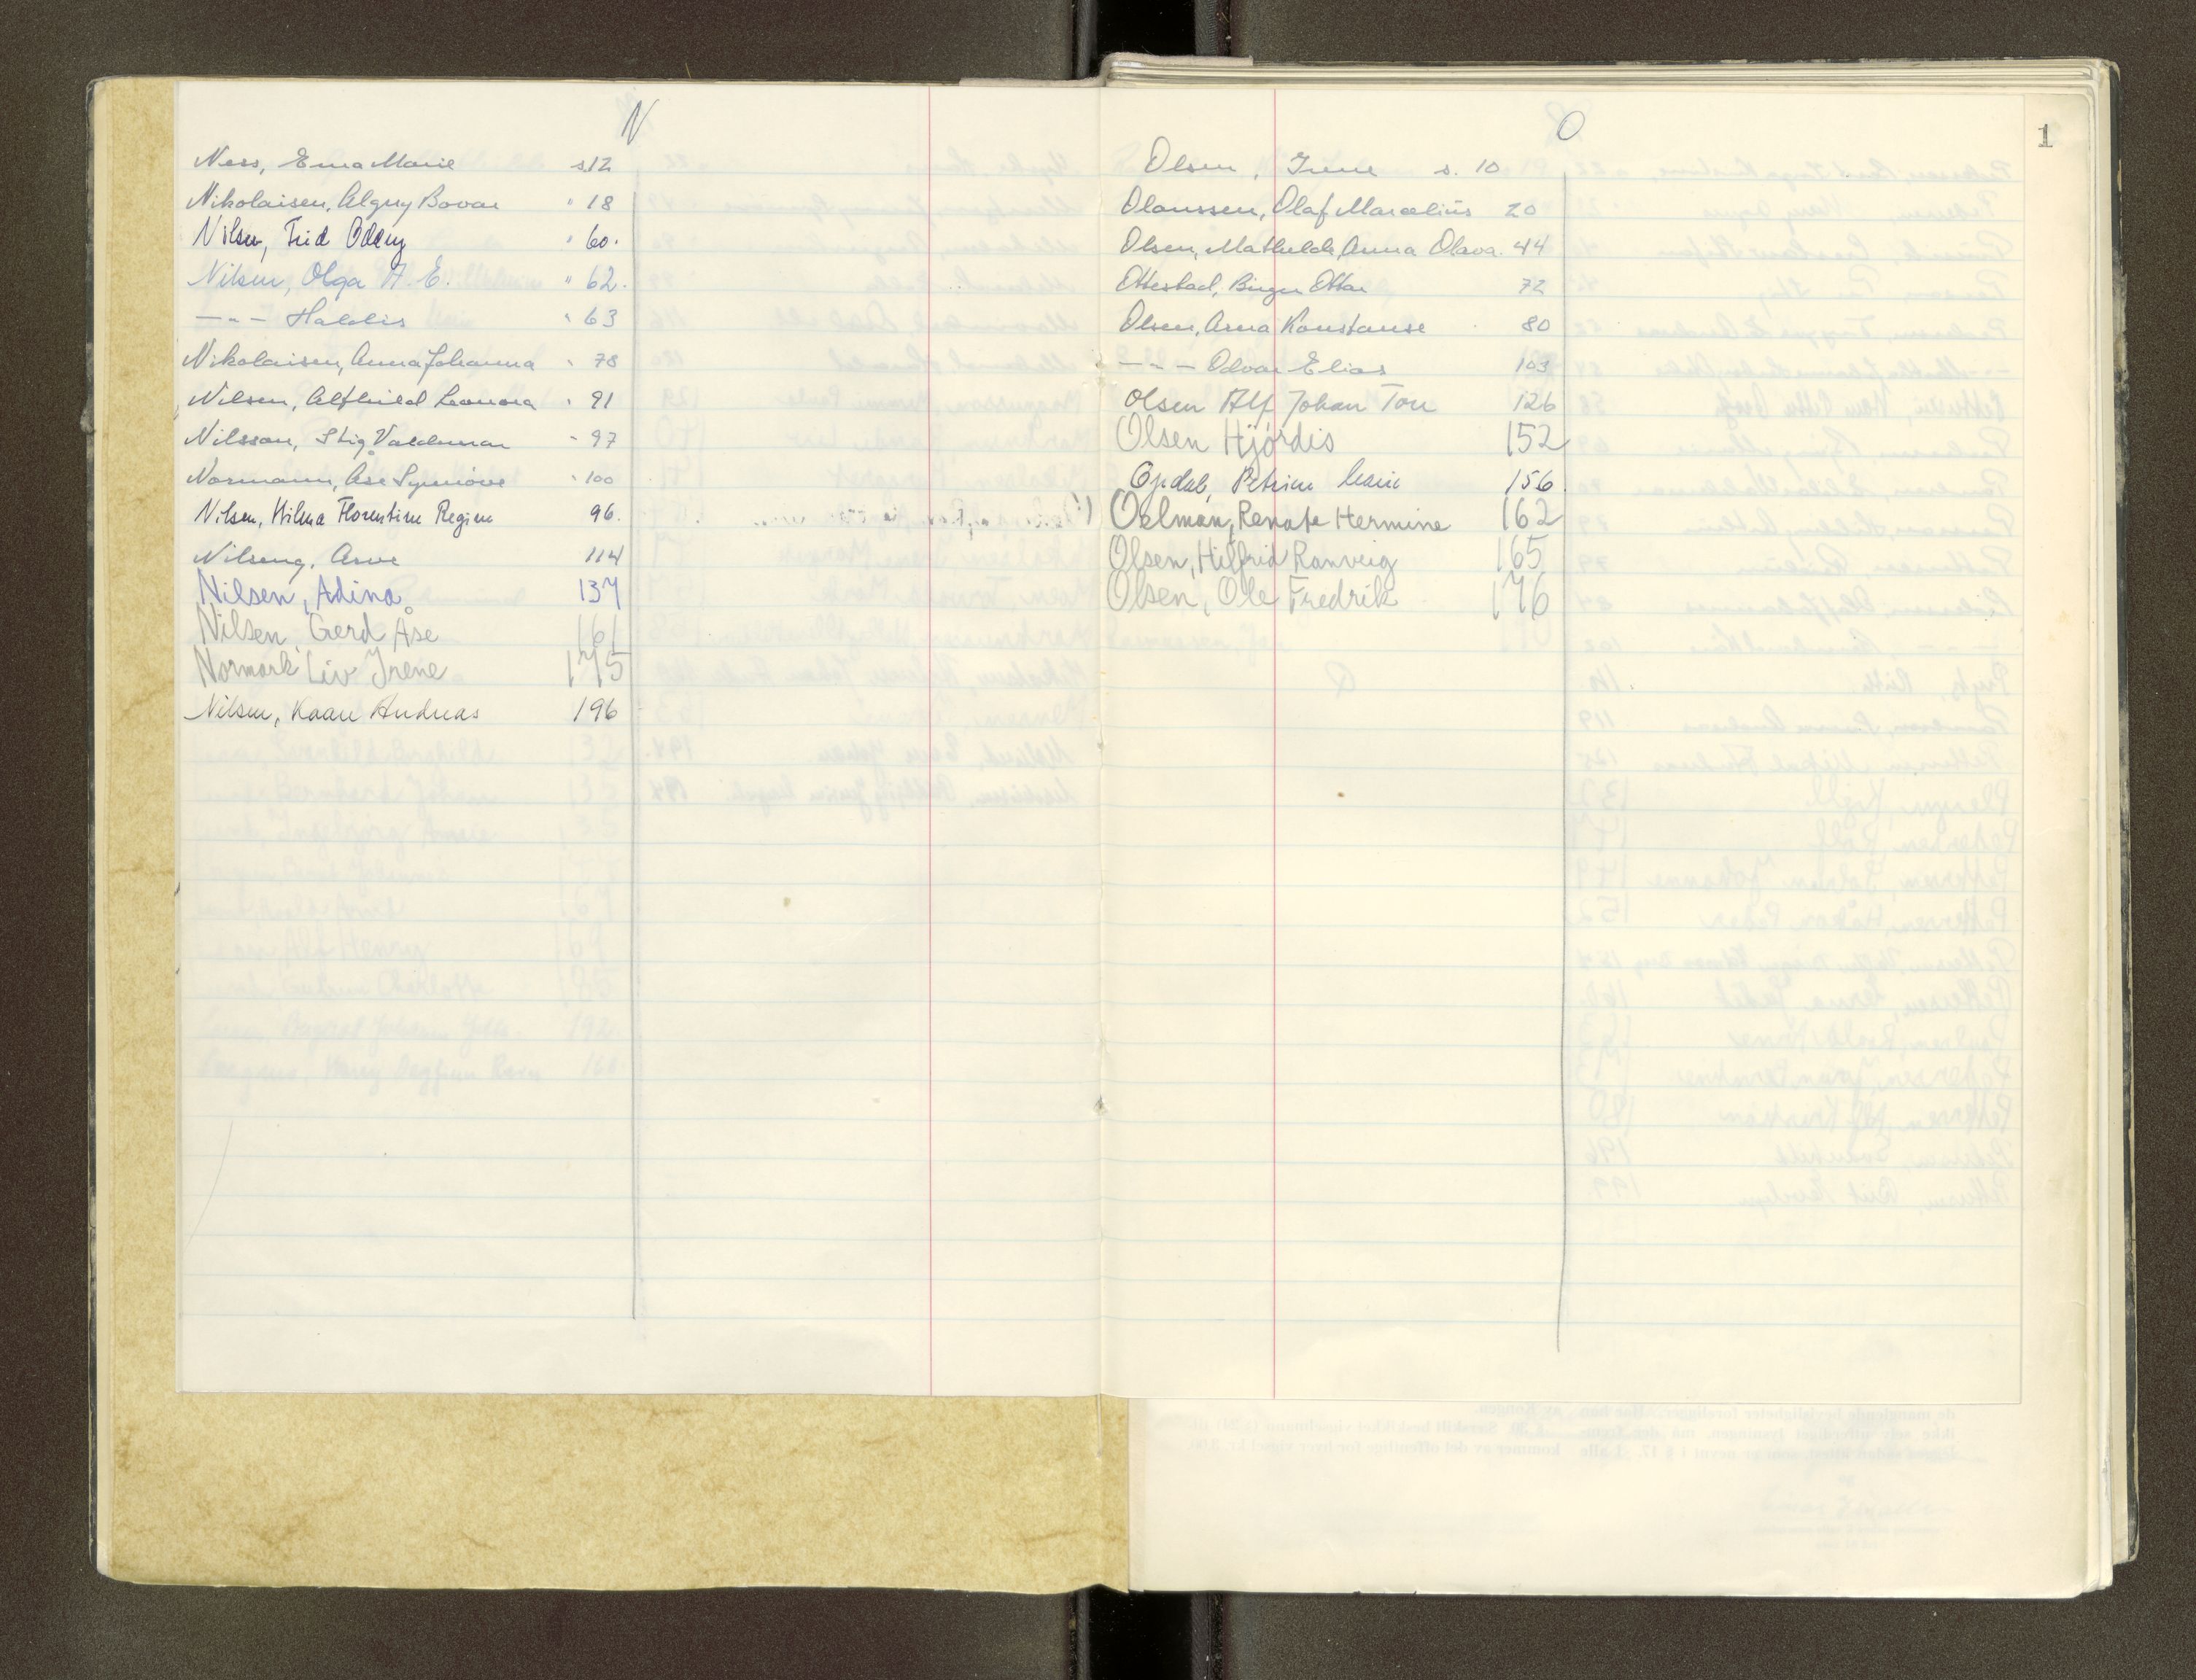 N
Ness, Erna Marie s.12
Nikolaisen, Algny Bovar " 18
Nilsen, Frid Oddny " 60.
Nilsen, Olga A. E. " 62.
— " — Haldis " 63
Nikolaisen, Anna Johanna " 78
Nilsen, Alfhild Leonora " 91
Nilsson, Stig Valdemar " 97
Normann, Åse Synnöve " 100
Nilsen, Hilma Florentine Regine 96.
Nilseng, Arve 114
Nilsen, Adina 137
Nilsen, Gerd Åse 161
Normark Liv Irene 175
Nilsen, Kaare Andreas 196
O
1
Olsen, Irene s. 10
Olaussen, Olaf Marcelius 20
Olsen, Mathilde Anna Olava. 44
Ottestad, Birger Ottar 72
Olsen, Arna Konstanse 80
— " — Odvar Elias 103
Olsen Alf Johan Tore 126
Olsen Hjördis 152
Opdal, Petrine 156.
Oelman, Renate Hermine 162
Olsen, Hilfrid Ranveig 165
Olsen, Ole Fredrik 176